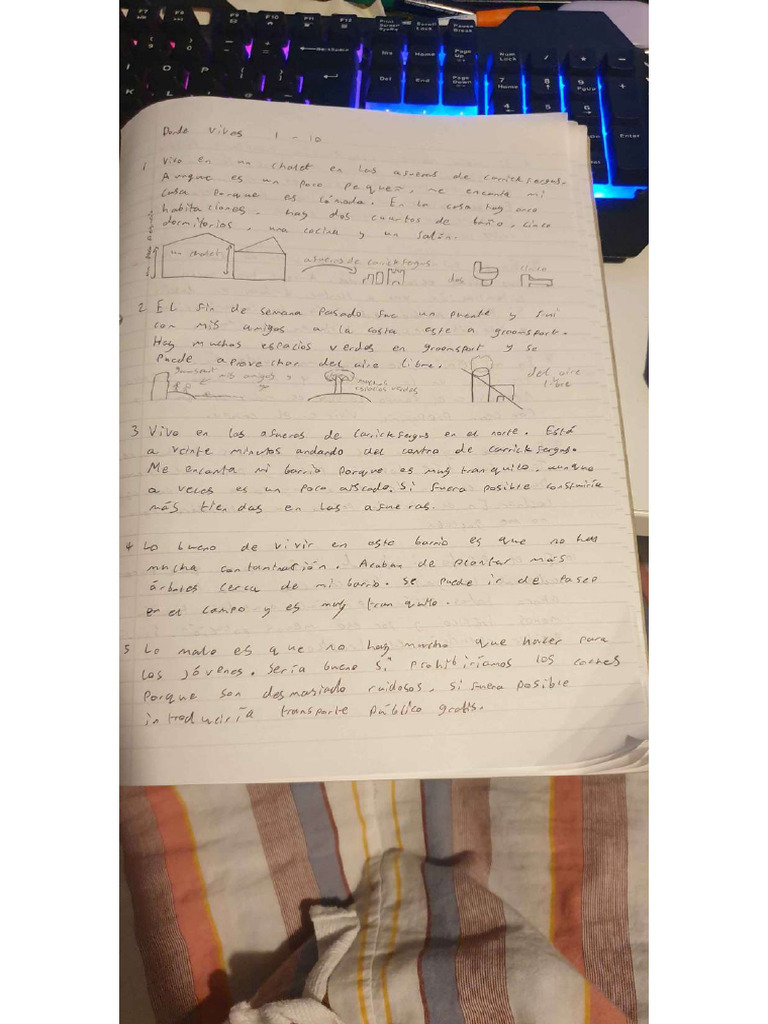 Donde vivas 1 - 10
1 Vivo en un chalet en las afueras de Carrickfergus.
Aunque es un poco pequeño, me encanta mi
casa porque es cómoda. En la casa hay once
habitaciones. Hay dos cuartos de baño, cinco
dormitorios, una cocina y un salón.
un chalet
afueras de carrickfergus
dos
cinco
2 El fin de semana pasado fue un puente y fui
con mis amigos a la costa este a groomsport.
Hay muchas espacios verdes en groomsport y se
puede aprovechar del aire libre.
groomsport
mis amigos y
yo
muchas
espacios verdes
del aire
libre
3 Vivo en las afueras de Carrickfergus en el norte. Está
a veinte minutos andando del centro de Carrickfergus.
Me encanta mi barrio porque es muy tranquilo, aunque
a veces es un poco aiscado. Si fuera posible construiría
más tiendas en las afueras.
4 Lo bueno de vivir en esto barrio es que no has
mucha contantnación. Acaban de plantar más
árboles cerca de mi barrio. Se puede ir de paseo
en el campo y es muy tranquilo.
5 Lo malo es que no hay mucho que hacer para
los jóvenes. Sería bueno si prohibiríamos los coches
porque son desmasiado ruidosos. Si fuera posible
introduciría transporte público gratis.
Print
Screen
SysRq
Scroll
Lock
Pause
Break
Backspace
Ins
Home
Page
Up
Del
End
Page
Down
Num
Lock
/
*
-
7
Home
8
9
PgUp
+
4
5
6
Enter